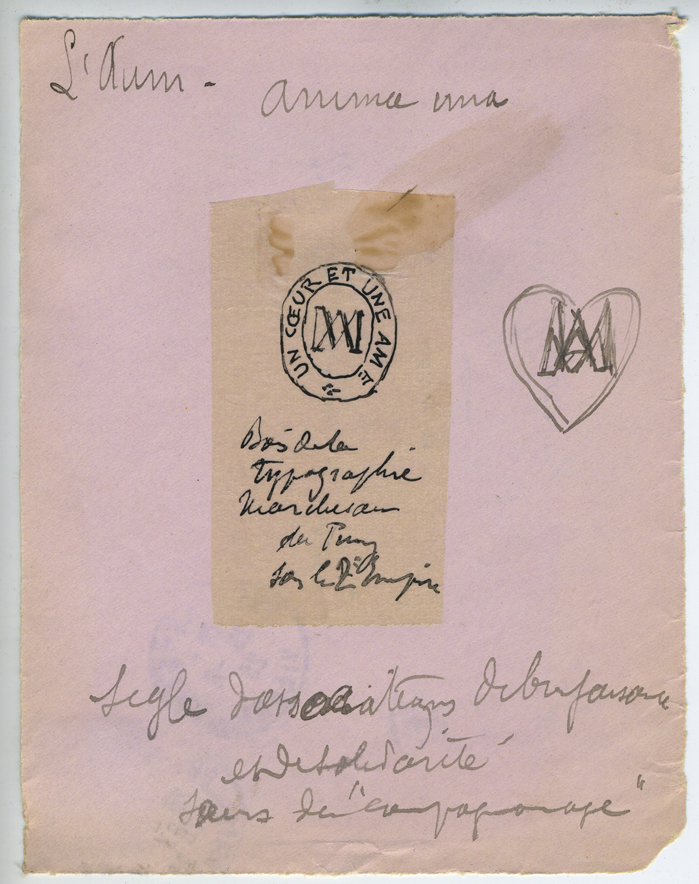 anima una
UN CŒUR ET UNE AME
Bois de la
typographie
du Puy
sous le 2e Empire
Sigle d'associations de bienfaisance
et de solidarité
sœurs du "compagnonage"